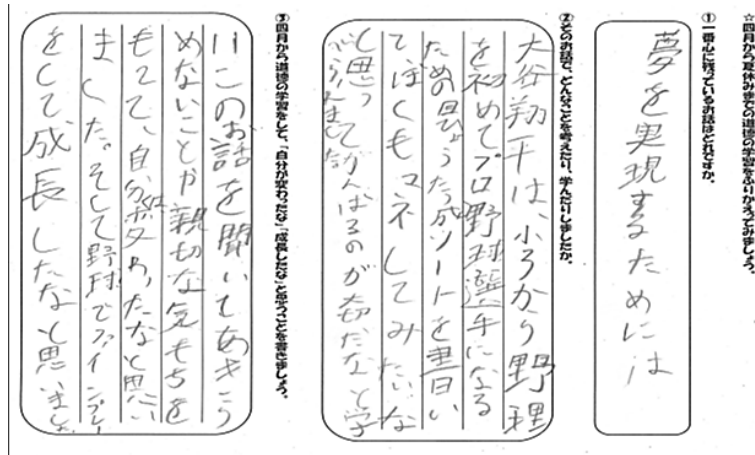 ☆四月から夏休みまでの道徳の学習をふりかえってみましょう。
①一番心に残っているお話はどれですか。
夢を実現するためには
②そのお話で、どんなことを考えたり、学んだりしましたか。
大谷翔平は、小3から野理
を初めてプロ野球選手になる
ための目ひょうたっ成ソートを書い
てぼくもマネしてみたいな
と思ってがんばるのが大切だなと学
びました
③四月から道徳の学習をして、「自分が変わったな」「成長したな」と思うことを書きましょう。
このお話を聞いてあきら
めないことや親切な気もちを
もてて、自分が変わったなと思い
ました。そして野球でファインプレー
をして成長したなと思いました